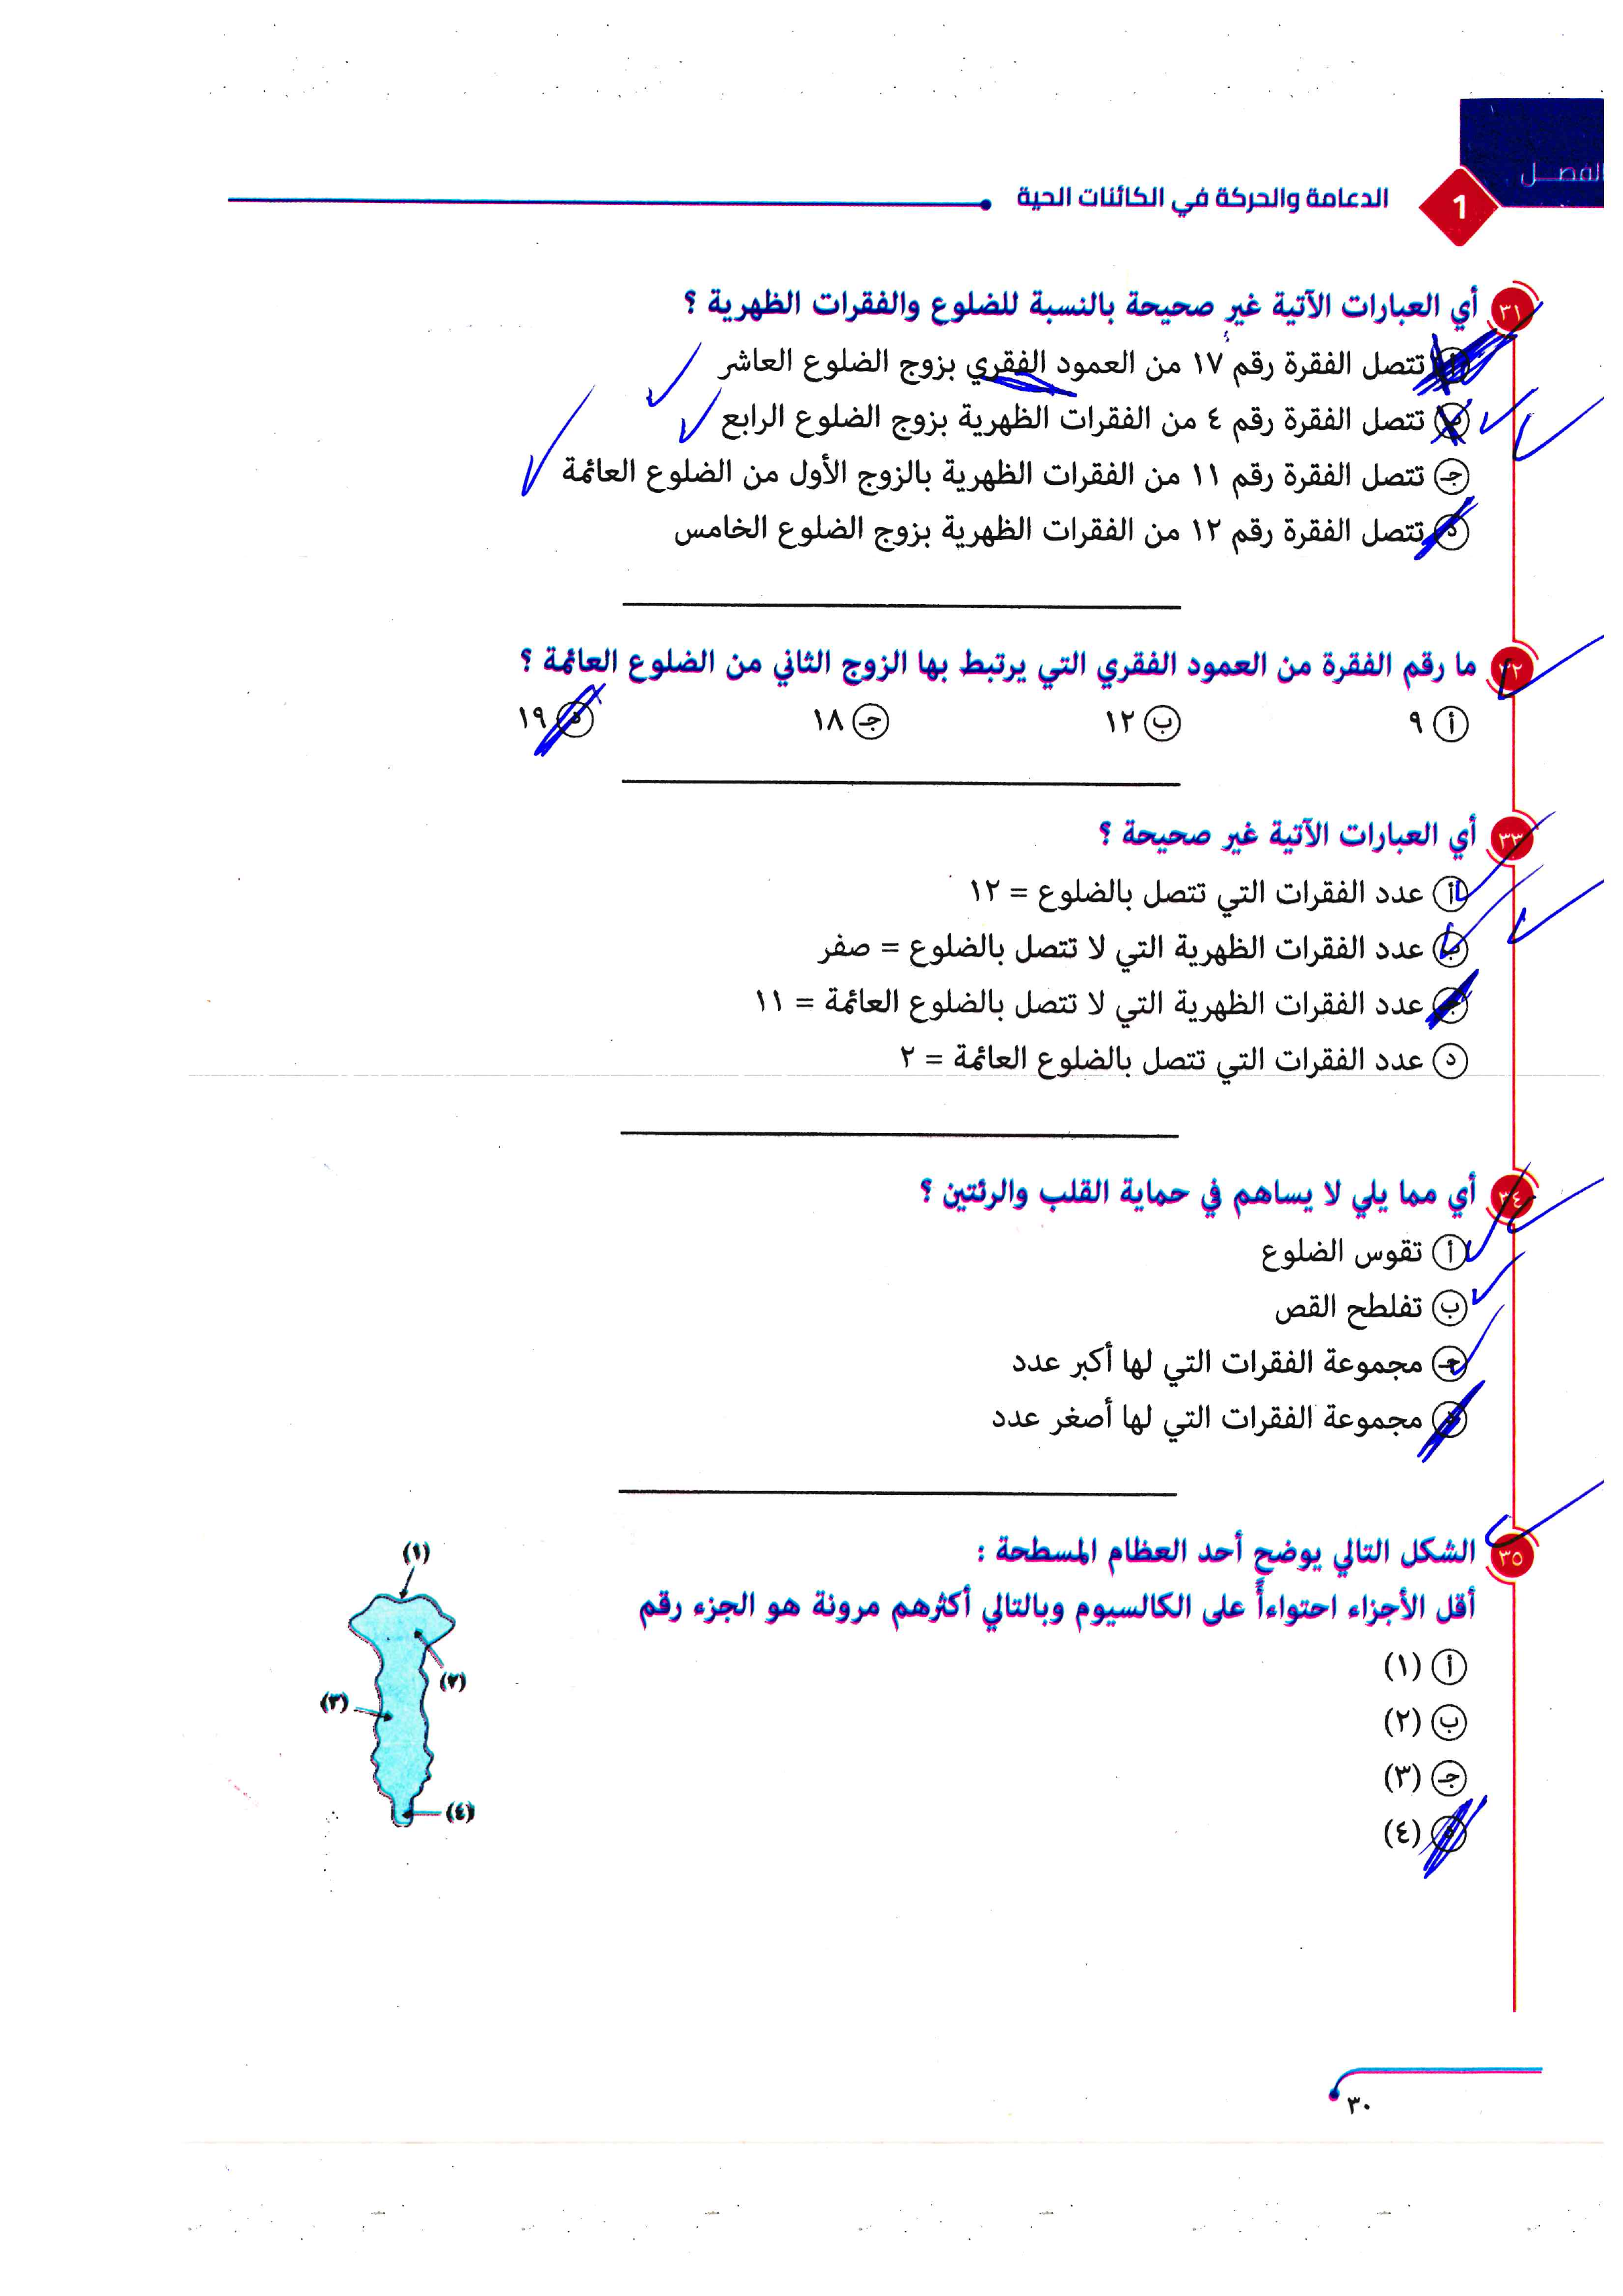 الفصل
1
الدعامة والحركة في الكائنات الحية
٣١ أي العبارات الآتية غير صحيحة بالنسبة للضلوع والفقرات الظهرية ؟
أ تتصل الفقرة رقم ١٧ من العمود الفقري بزوج الضلوع العاشر
ب تتصل الفقرة رقم ٤ من الفقرات الظهرية بزوج الضلوع الرابع
جـ تتصل الفقرة رقم ١١ من الفقرات الظهرية بالزوج الأول من الضلوع العائمة
د تتصل الفقرة رقم ١٢ من الفقرات الظهرية بزوج الضلوع الخامس
٣٢ ما رقم الفقرة من العمود الفقري التي يرتبط بها الزوج الثاني من الضلوع العائمة ؟
أ ٩ ب ١٢ جـ ١٨ د ١٩
٣٣ أي العبارات الآتية غير صحيحة ؟
أ عدد الفقرات التي تتصل بالضلوع = ١٢
ب عدد الفقرات الظهرية التي لا تتصل بالضلوع = صفر
جـ عدد الفقرات الظهرية التي لا تتصل بالضلوع العائمة = ١١
د عدد الفقرات التي تتصل بالضلوع العائمة = ٢
٣٤ أي مما يلي لا يساهم في حماية القلب والرئتين ؟
أ تقوس الضلوع
ب تفلطح القص
جـ مجموعة الفقرات التي لها أكبر عدد
د مجموعة الفقرات التي لها أصغر عدد
٣٥ الشكل التالي يوضح أحد العظام المسطحة :
أقل الأجزاء احتواءاً على الكالسيوم وبالتالي أكثرهم مرونة هو الجزء رقم
أ (١)
ب (٢)
جـ (٣)
د (٤)
(١)
(٢)
(٣)
(٤)
٣٠